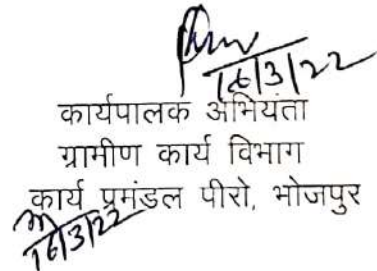 16/3/22
कार्यपालक अभियंता
ग्रामीण कार्य विभाग
कार्य प्रमंडल पीरो, भोजपुर
16/3/22